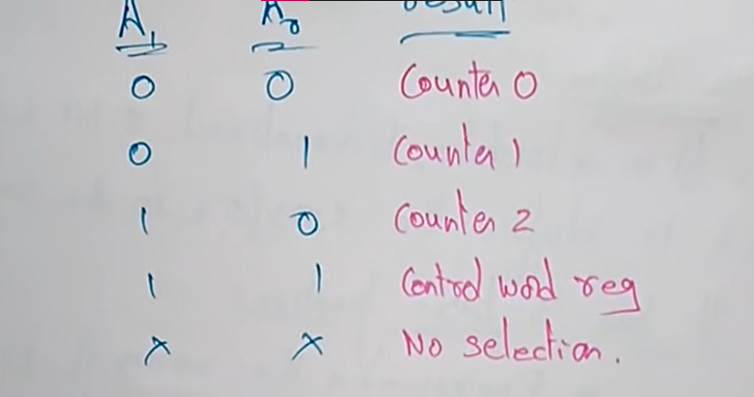 A₁ A₀ Result
0 0 Counter 0
0 1 Counter 1
1 0 Counter 2
1 1 Control word reg
X X No selection.